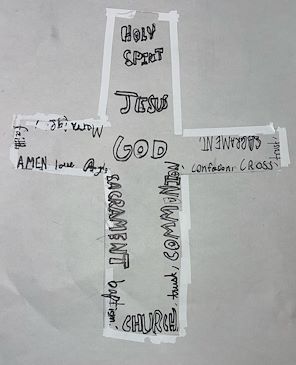 HOLY
SPIRIT
JESUS
GOD
Marriage
faith
AMEN love
SACRAMENT
trust
confession, CROSS,
SACRAMENT
baptism,
COMMUNION
trust,
CHURCH